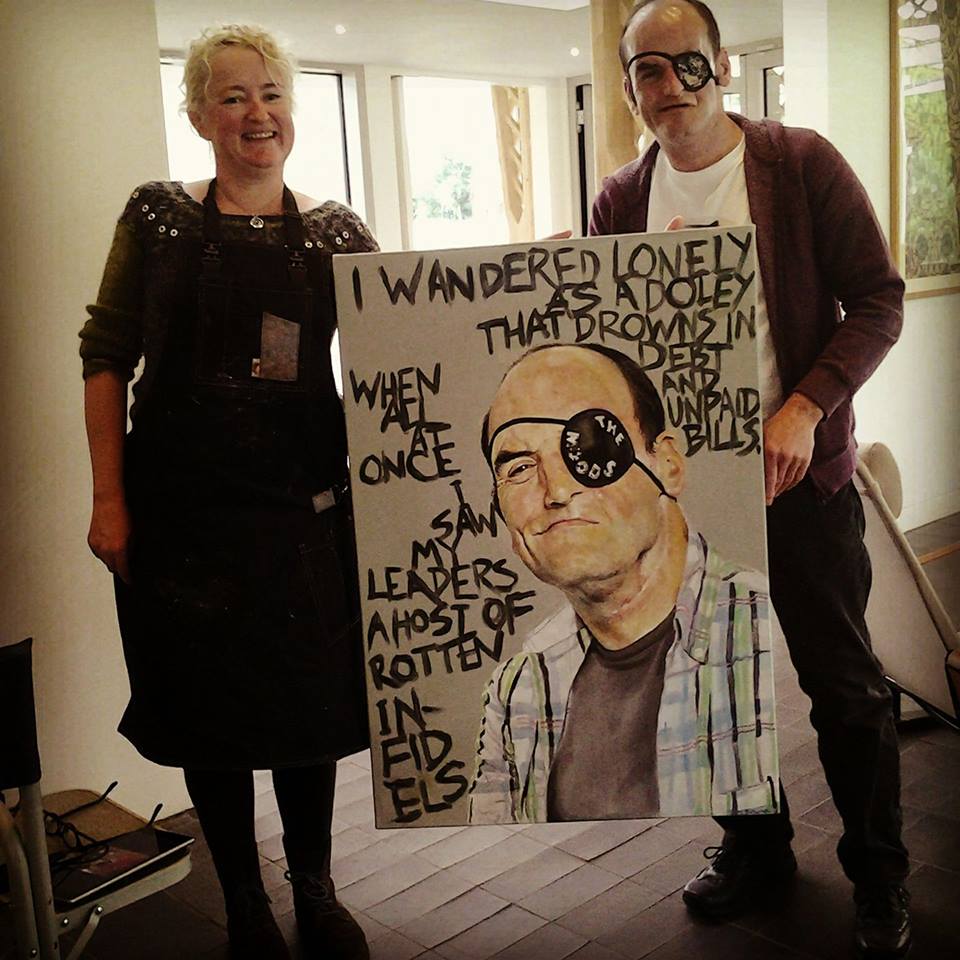 I WANDERED LONELY
AS A DOLEY
THAT DROWNS IN
DEBT
AND
UNPAID
BILLS.
WHEN
ALL
AT
ONCE
I
SAW
MY
LEADERS
A HOST OF
ROTTEN
IN-
FID
ELS
THE